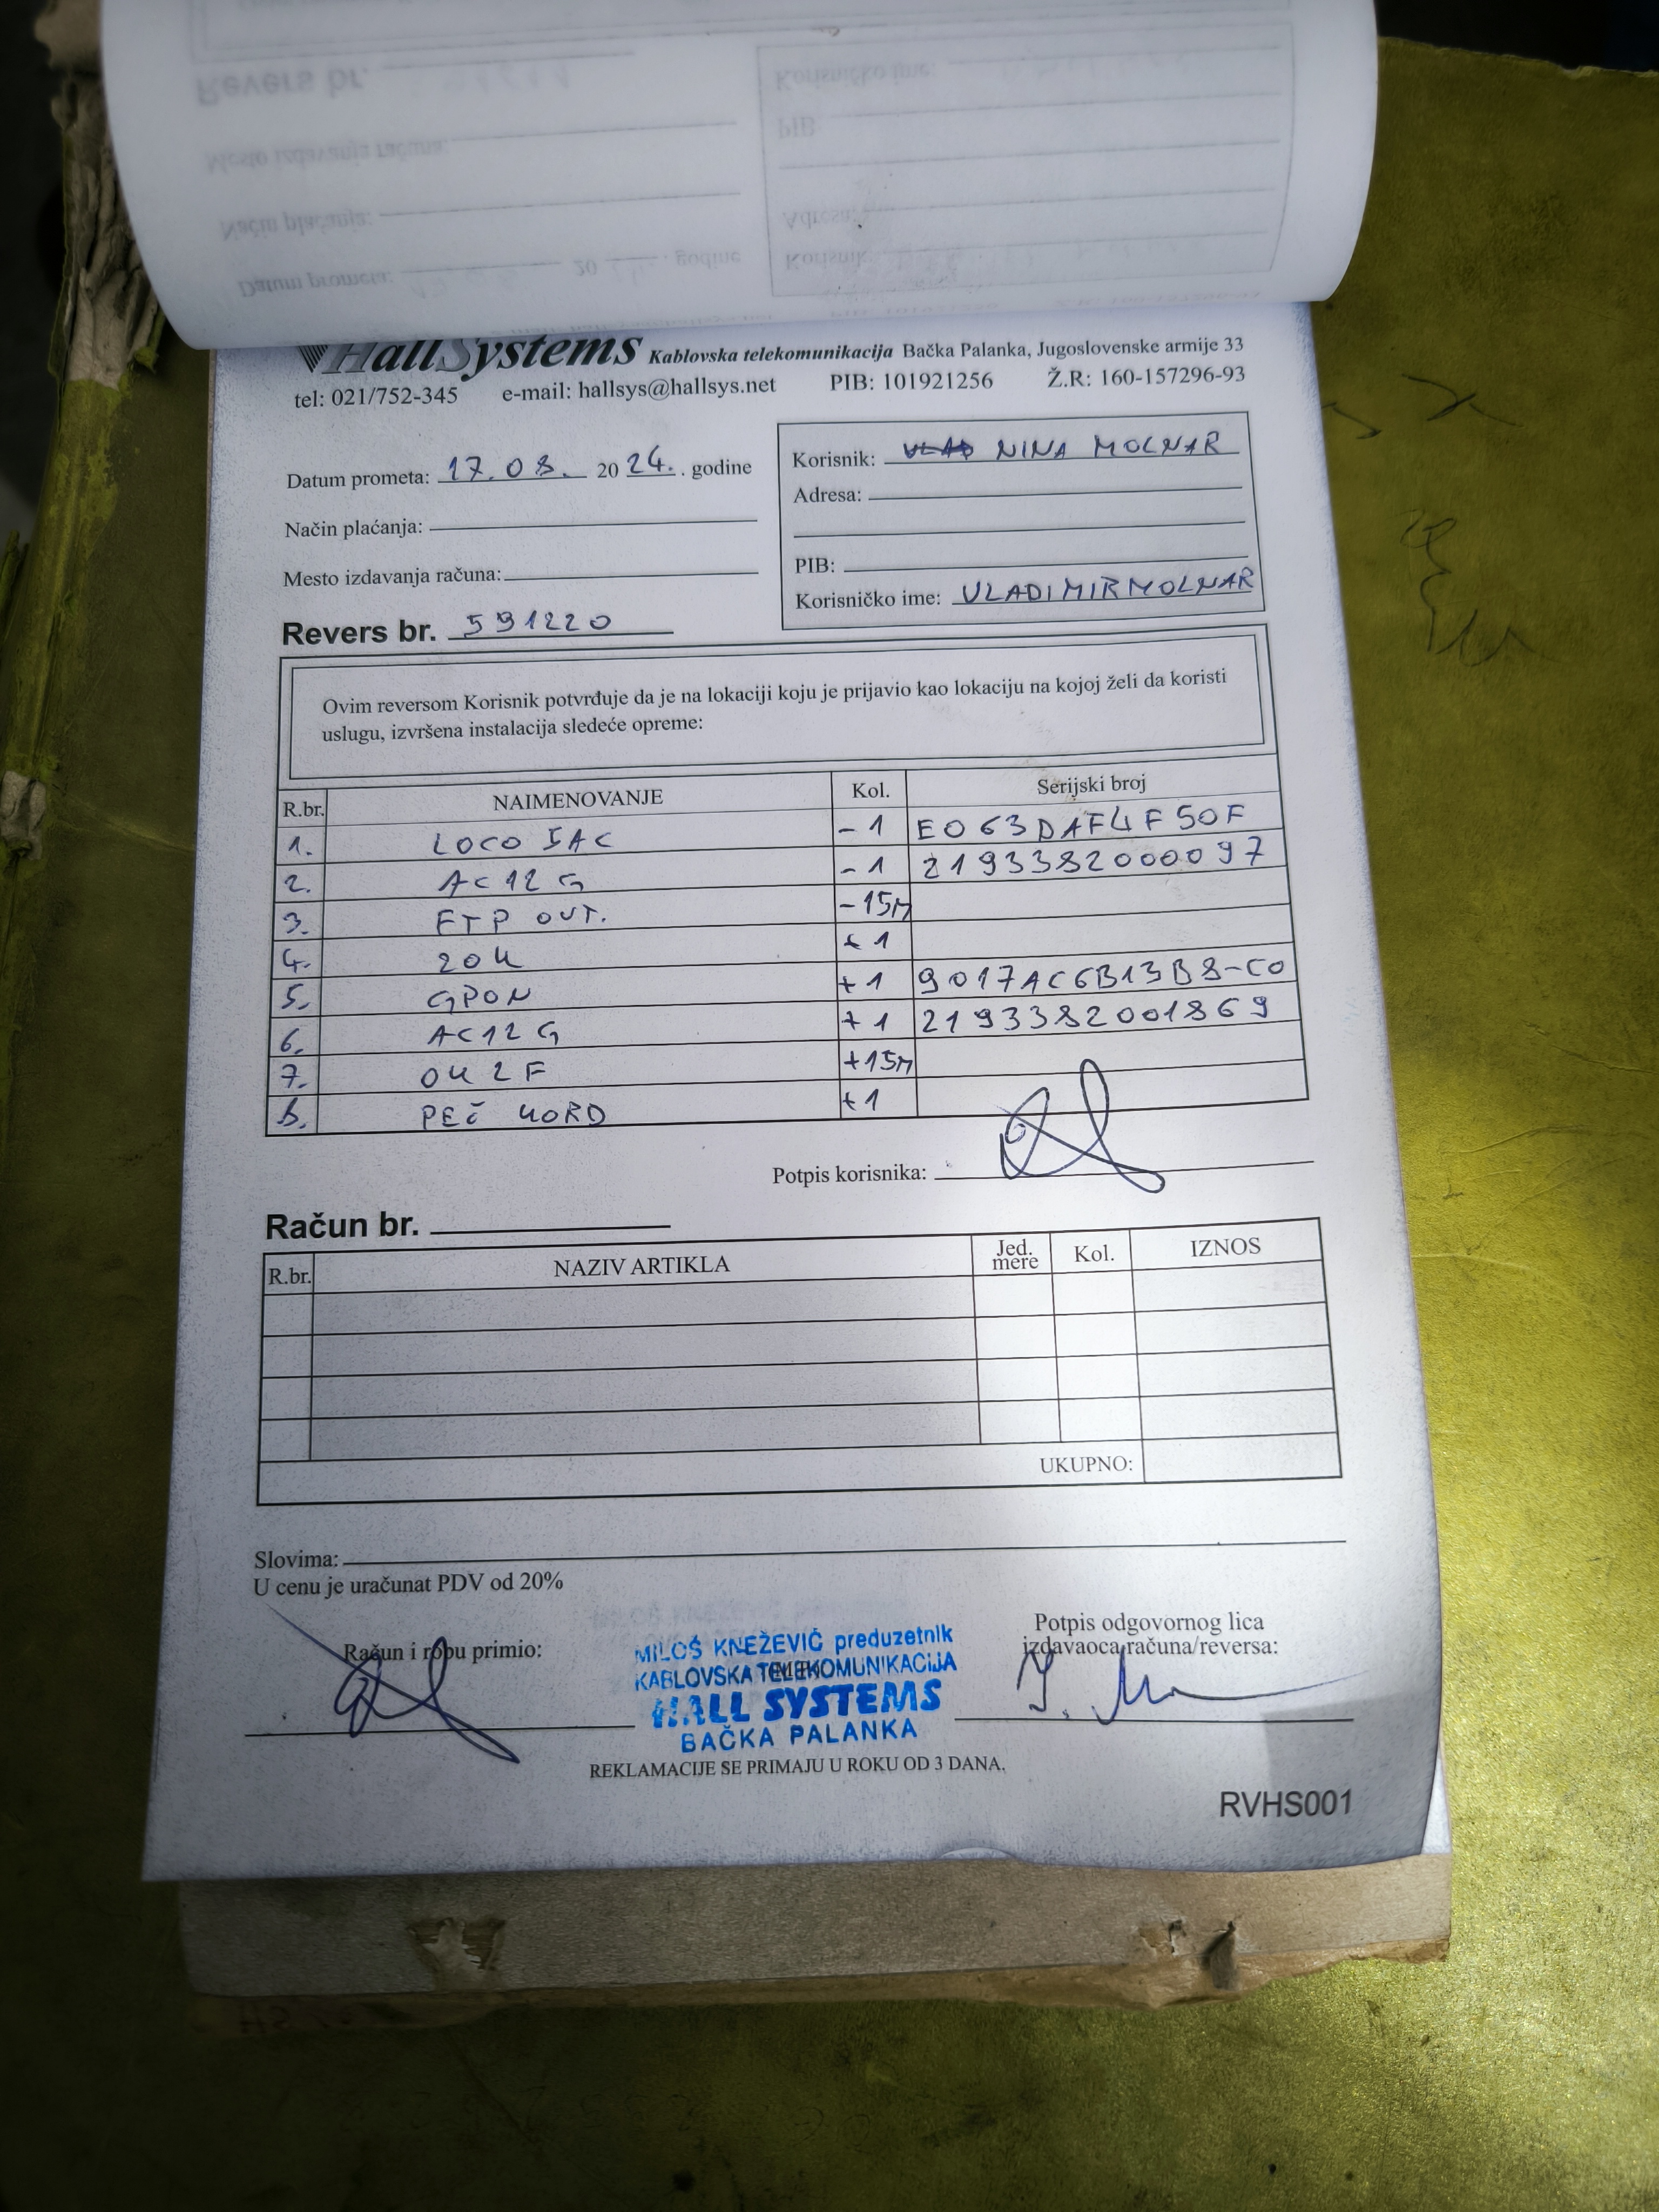 HallSystems Kablovska telekomunikacija Bačka Palanka, Jugoslovenske armije 33
tel: 021/752-345 e-mail: hallsys@hallsys.net PIB: 101921256 Ž.R: 160-157296-93
Datum prometa: 17.08. 20 24. . godine
Način plaćanja:
Mesto izdavanja računa:
Revers br. 591220
Korisnik: NINA MOLNAR
Adresa:
PIB:
Korisničko ime: VLADIMIRMOLNAR
Ovim reversom Korisnik potvrđuje da je na lokaciji koju je prijavio kao lokaciju na kojoj želi da koristi
uslugu, izvršena instalacija sledeće opreme:
R.br. NAIMENOVANJE Kol. Serijski broj
1. LOCO 5AC - 1 E063DAF4F50F
2. AC12G - 1 2193382000097
3. FTP OUT. - 15M
4. 20K + 1
5. GPON + 1 9017AC6B13B8-C0
6. AC12G + 1 2193382001869
7. OK 2F +15M
8. PEČ KORD + 1
Potpis korisnika:
Račun br.
R.br. NAZIV ARTIKLA Jed. mere Kol. IZNOS
UKUPNO:
Slovima:
U cenu je uračunat PDV od 20%
Račun i robu primio:
MILOŠ KNEŽEVIĆ preduzetnik
KABLOVSKA TELEKOMUNIKACIJA
HALL SYSTEMS
BAČKA PALANKA
Potpis odgovornog lica
izdavaoca računa/reversa:
REKLAMACIJE SE PRIMAJU U ROKU OD 3 DANA.
RVHS001